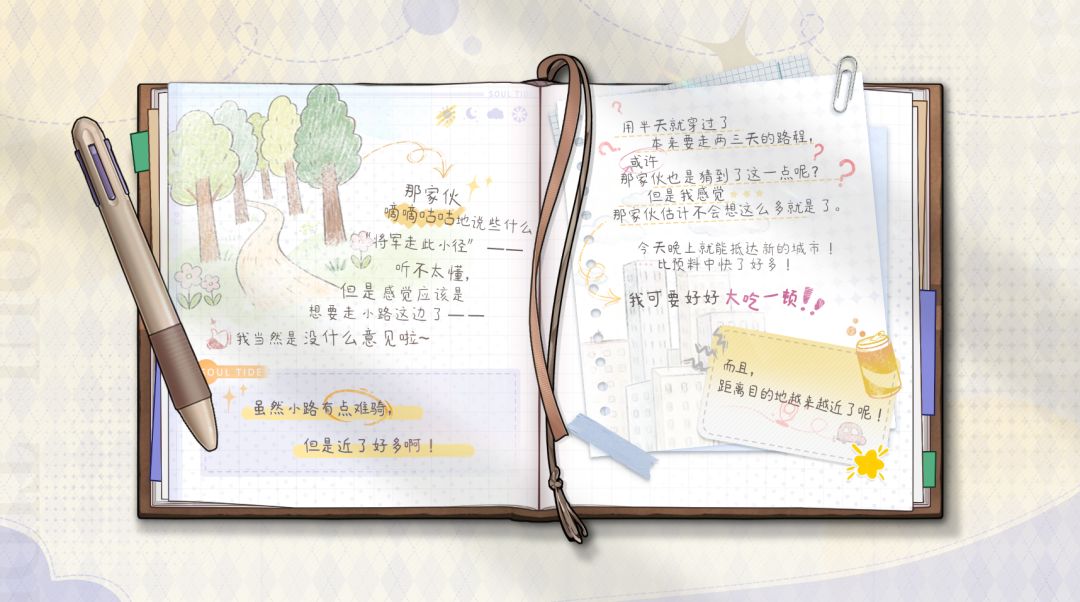 SOUL TIDE
那家伙
嘀嘀咕咕地说些什么
“将军走此小径”——
听不太懂，
但是感觉应该是
想要走小路这边了——
我当然是没什么意见啦~
SOUL TIDE
虽然小路有点难骑，
但是近了好多啊！
用半天就穿过了
本来要走两三天的路程，
或许
那家伙也是猜到了这一点呢？
但是我感觉
那家伙估计不会想这么多就是了。
今天晚上就能抵达新的城市！
比预料中快了好多！
我可要好好大吃一顿！！
而且，
距离目的地越来越近了呢！